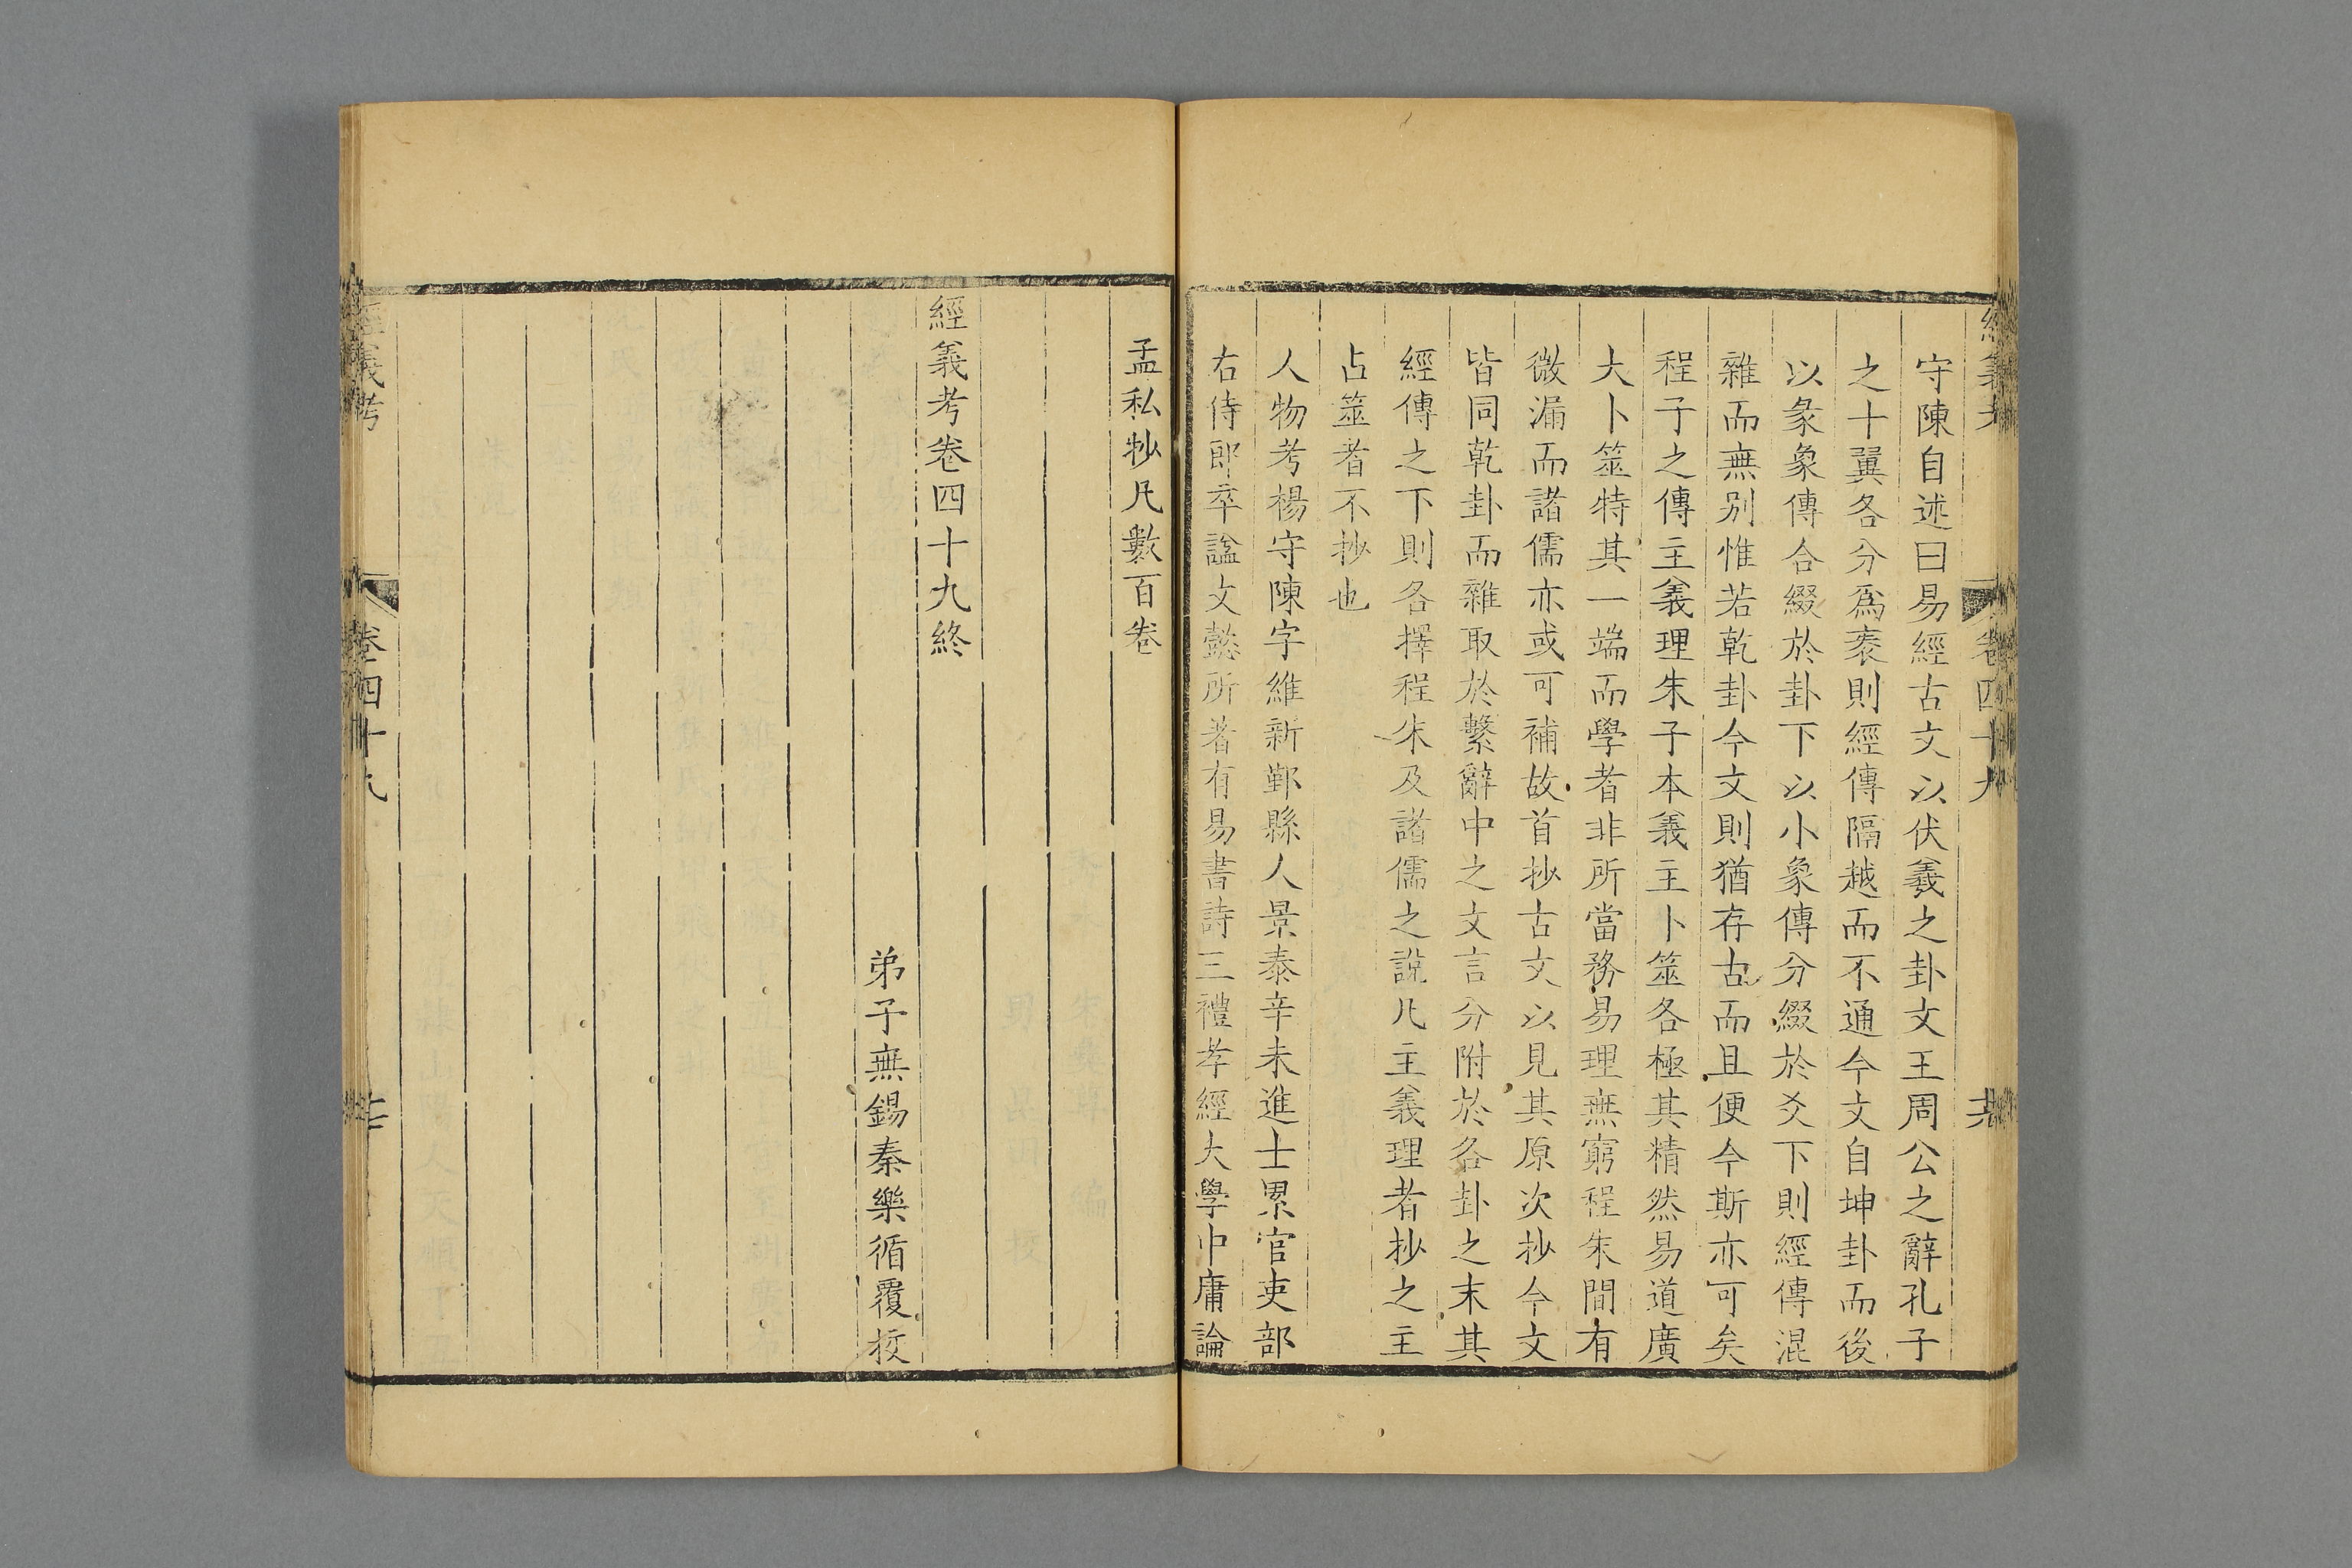 經義考
卷四十九
守陳自述曰易經古文以伏羲之卦文王周公之辭孔子
之十翼各分爲袠則經傳隔越而不通今文自坤卦而後
以彖象傳合綴於卦下以小象傳分綴於爻下則經傳混
雜而無別惟若乾卦今文則猶存古而且便今斯亦可矣
程子之傳主義理朱子本義主卜筮各極其精然易道廣
大卜筮特其一端而學者非所當務易理無窮程朱間有
微漏而諸儒亦或可補故首抄古文以見其原次抄今文
皆同乾卦而雜取於繫辭中之文言分附於各卦之末其
經傳之下則各擇程朱及諸儒之說凡主義理者抄之主
占筮者不抄也
人物考楊守陳字維新鄞縣人景泰辛未進士累官吏部
右侍郎卒諡文懿所著有易書詩三禮孝經大學中庸論
孟私抄凡數百卷
經義考卷四十九終
弟子無錫秦樂循覆校
經義考
卷四十九